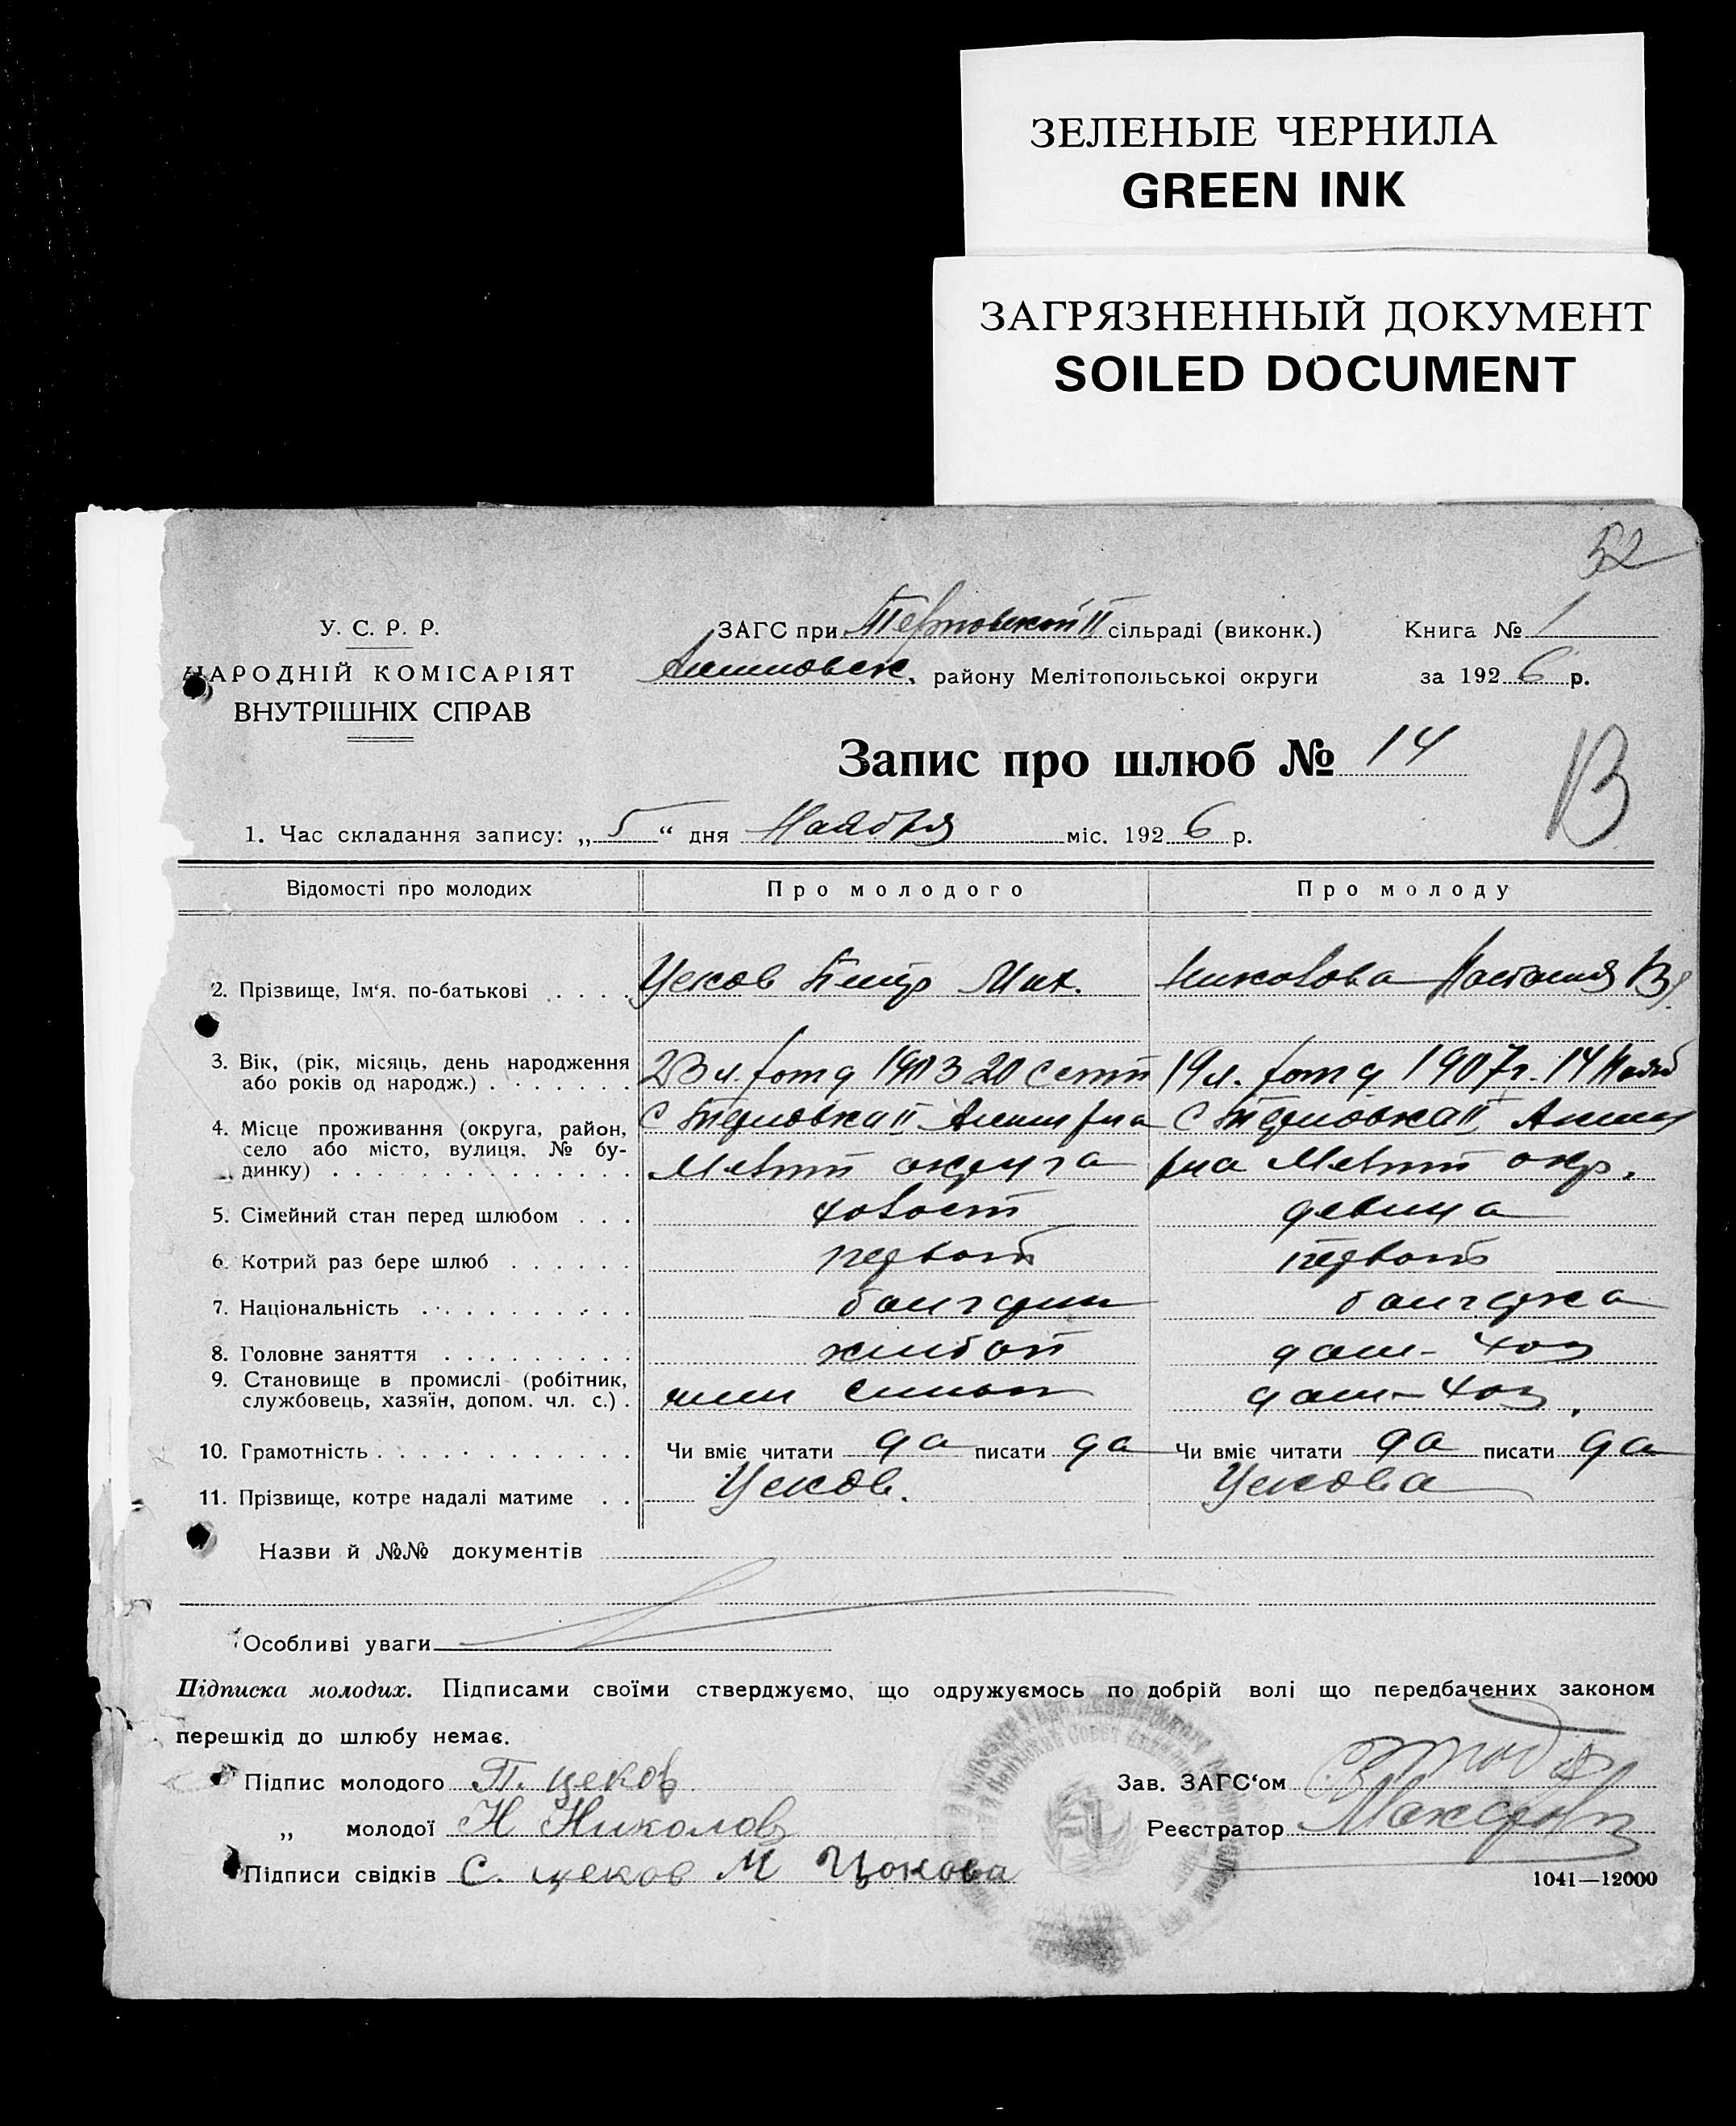 ЗЕЛЕНЫЕ ЧЕРНИЛА
GREEN INK
ЗАГРЯЗНЕННЫЙ ДОКУМЕНТ
SOILED DOCUMENT
52
У. С. Р. Р.
НАРОДНІЙ КОМІСАРІЯТ
ВНУТРІШНІХ СПРАВ
ЗАГС при II сільраді (виконк.)
району Мелітопольської округи
Книга № 1
за 1926 р.
Запис про шлюб № 14
В
1. Час складання запису: „5“ дня Наября міс. 1926 р.
Відомості про молодих Про молодого Про молоду
2. Прізвище, Ім'я, по-батькові . . . . Цеков Петр Мих. Николова
3. Вік, (рік, місяць, день народження 23 л. 1903 20 19 л. 1907 г. 14
або років од народж.) . . . . . . .
4. Місце проживання (округа, район, с II с II
село або місто, вулиця, № бу- Мелит округа Мелит окр.
динку) . . . . . . . . . . . . . .
5. Сімейний стан перед шлюбом . . . холост девица
6. Котрий раз бере шлюб . . . . . . первой первой
7. Національність . . . . . . . . . . болгарин болгарка
8. Головне заняття . . . . . . . . . хлебоп дом-хоз
9. Становище в промислі (робітник, член семьи дом-хоз.
службовець, хазяїн, допом. чл. с.) .
10. Грамотність . . . . . . . . . . . . Чи вміє читати да писати да Чи вміє читати да писати да
11. Прізвище, котре надалі матиме . . Цеков. Цекова
Назви й №№ документів
Особливі уваги
Підписка молодих. Підписами своїми стверджуємо, що одружуємось по добрій волі що передбачених законом
перешкід до шлюбу немає.
Підпис молодого П. цеков
„ молодої Н Николов
Підписи свідків С. цеков М Цокова
Зав. ЗАГС'ом
Реєстратор
1041—12000